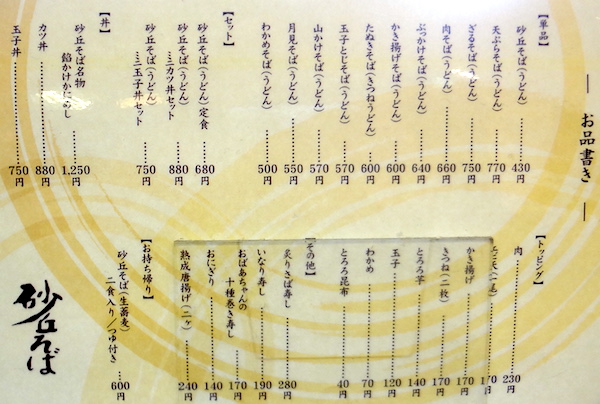 ― お品書き ―
【単品】
砂丘そば(うどん)………430円
天ぷらそば(うどん)………770円
ざるそば(うどん)………750円
肉そば(うどん)………660円
ぶっかけそば(うどん)………640円
かき揚げそば(うどん)………600円
たぬきそば(きつねうどん)………600円
玉子とじそば(うどん)………570円
山かけそば(うどん)………570円
月見そば(うどん)………550円
わかめそば(うどん)………500円
【セット】
砂丘そば(うどん)定食………680円
砂丘そば(うどん)
…ミニカツ丼セット………880円
砂丘そば(うどん)
…ミニ玉子丼セット………750円
【丼】
砂丘そば名物
餡かけかにめし………1,250円
カツ丼………880円
玉子丼………750円
【トッピング】
肉………230円
天(一尾)………170円
かき揚げ………170円
きつね(二枚)………170円
とろろ芋………140円
玉子………120円
わかめ………70円
とろろ昆布………40円
【その他】
炙りさば寿し………280円
いなり寿し………190円
おばあちゃんの
十種巻き寿し………170円
おにぎり………140円
熟成唐揚げ(二ヶ)………240円
【お持ち帰り】
砂丘そば(生蕎麦)
二食入り/つゆ付き………600円
砂丘そば